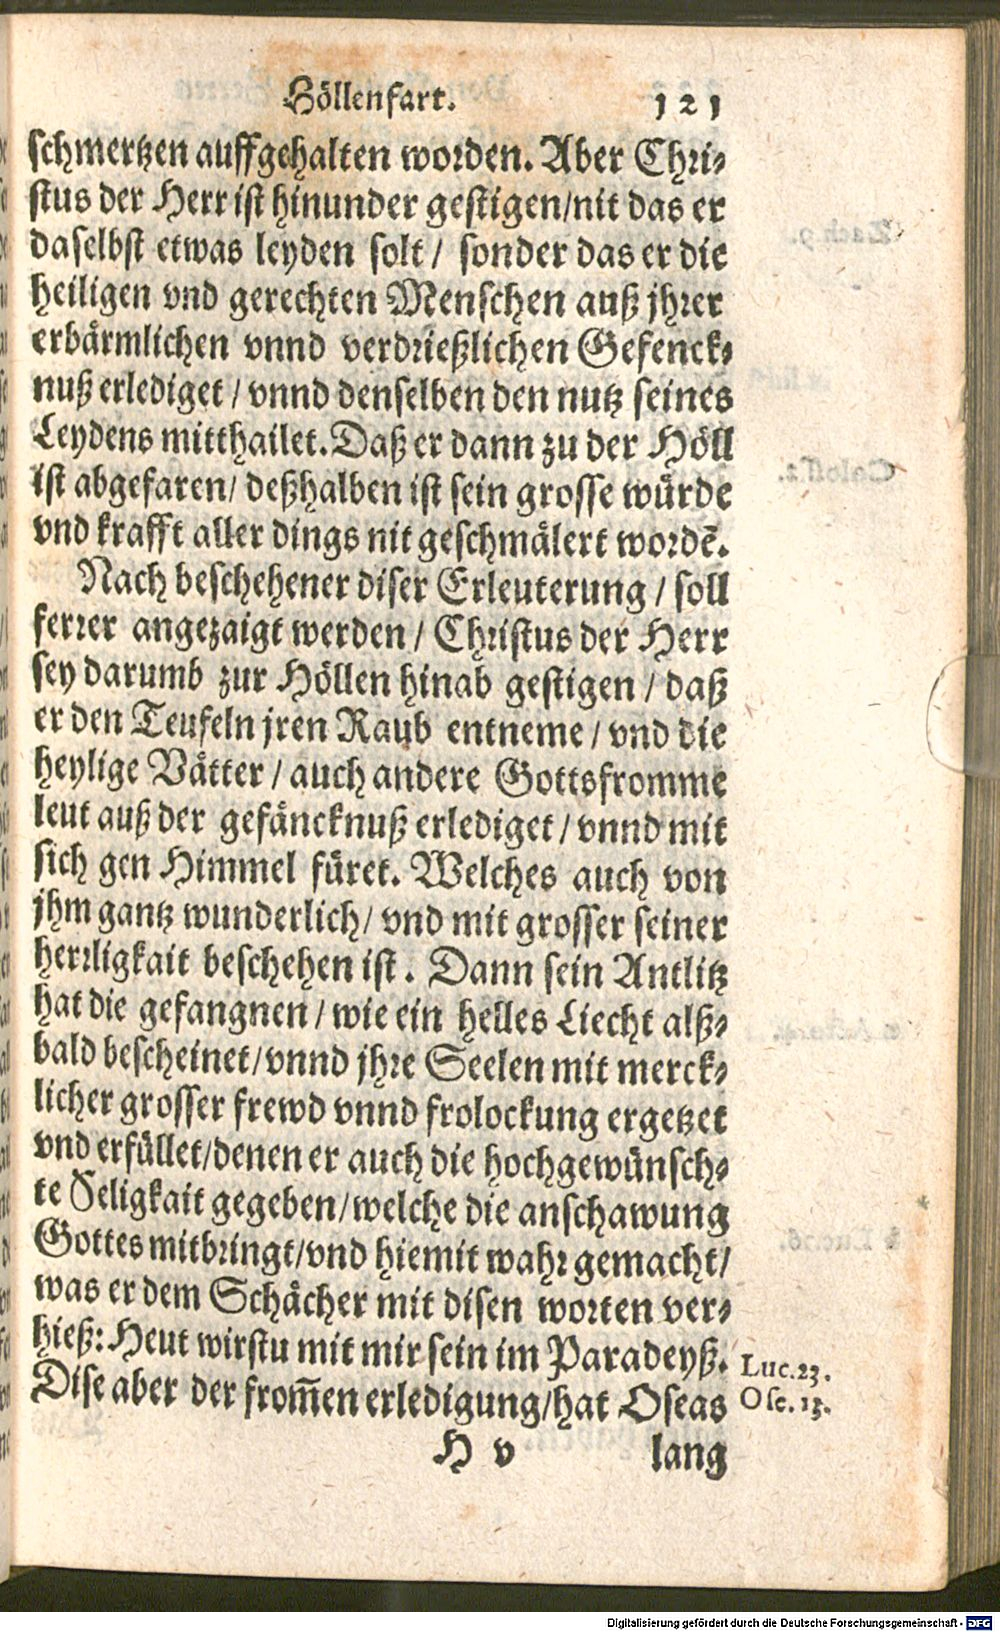 Höllenfart. 121
schmertzen auffgehalten worden. Aber Chri-
stus der Herr ist hinunder gestigen/nit das er
daselbst etwas leyden solt / sonder das er die
heiligen vnd gerechten Menschen auß jhrer
erbärmlichen vnnd verdrießlichen Gefenck-
nuß erlediget / vnnd denselben den nutz seines
Leydens mitthailet. Daß er dann zu der Höll
ist abgefaren/ deßhalben ist sein grosse würde
vnd krafft aller dings nit geschmälert wordẽ.
Nach beschehener diser Erleuterung / soll
ferrer angezaigt werden / Christus der Herr
sey darumb zur Höllen hinab gestigen / daß
er den Teufeln jren Raub entneme / vnd die
heylige Vätter / auch andere Gottsfromme
leut auß der gefäncknuß erlediget / vnnd mit
sich gen Himmel füret. Welches auch von
jhm gantz wunderlich/ vnd mit grosser seiner
herrligkait beschehen ist. Dann sein Antlitz
hat die gefangnen / wie ein helles Liecht alß-
bald bescheinet/vnnd jhre Seelen mit merck-
licher grosser frewd vnnd frolockung ergetzet
vnd erfüllet/denen er auch die hochgewünsch-
te Seligkait gegeben/welche die anschawung
Gottes mitbringt/vnd hiemit wahr gemacht/
was er dem Schächer mit disen worten ver-
hieß: Heut wirstu mit mir sein im Paradeyß. Luc.23.
Dise aber der from̃en erledigung/hat Oseas Ose.13.
H v lang
Digitalisierung gefördert durch die Deutsche Forschungsgemeinschaft - DFG